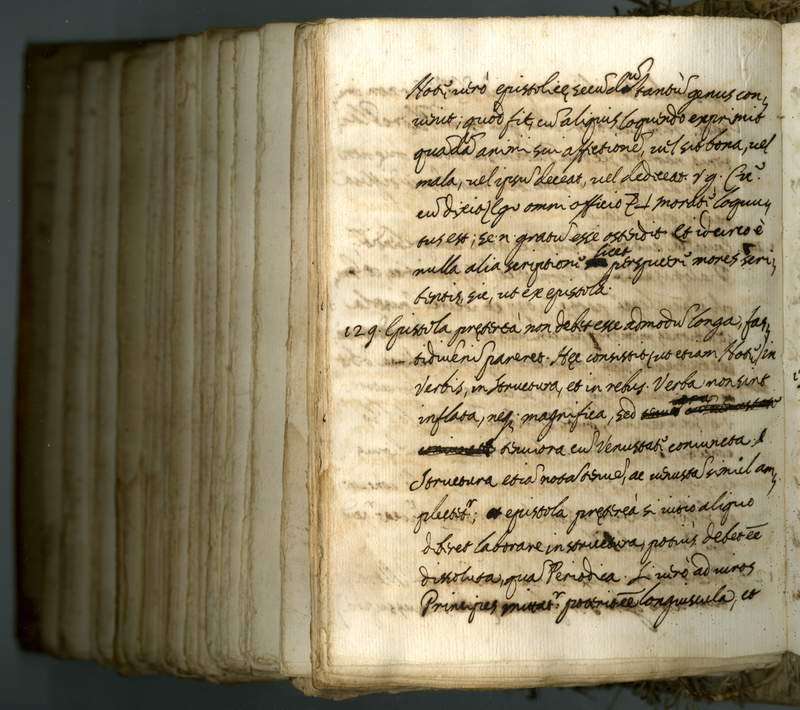 Notᵃ. vero epistolicę secūdū tantū genus con,
uenit; quod fit, cū aliquis loquendo exprimit
quādā animi sui affectionē, uel sit bona, uel
mala, uel ipsū deceat, uel dedeceat. v.g. Cic.
cū dixit, Ego omni officio Moratᵃ. loquu,
tus est; se n. gratū esse ostēdit. Et idcirco ē
nulla alia scriptionᵉ licet perspicerᵉ mores scri,
bentis, sic, ut ex epistola.
129. Epistola pręterea non debet esse admodū longa, fas,
tidiū .n. pareret. Hęc consistit, ut etiam Notᵃ. in
Verbis, in structura, et in rebus. Verba non sint
inflata, neq. magnifica, sed
tenuiora cū Venustatᵉ coniuncta.
Structura etiā nota tenuē, ac uenustā simul am,
plectetʳ; epistola pręterea si uitio aliquo
deberet laborare in structura, potius debet ēē
dissoluta, quā Periodica. Si uero ad uiros
Principes mittatʳ. poterit ēē longiuscula, et